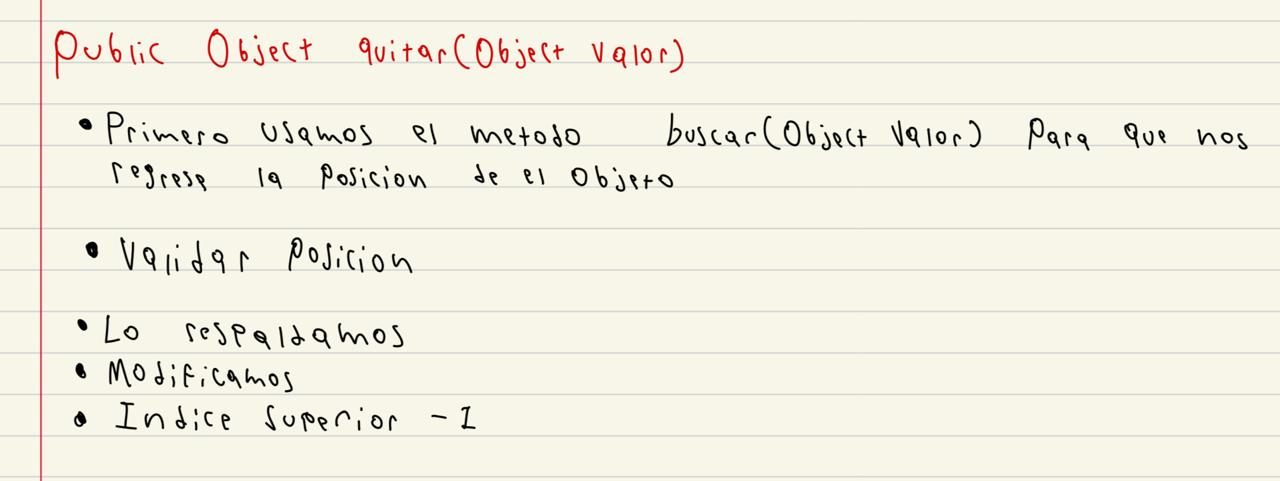 Public Object quitar(Object valor)
• Primero usamos el metodo buscar(Object valor) para que nos
regrese la posicion de el objeto
• Validar posicion
• Lo respaldamos
• Modificamos
• Indice superior -1